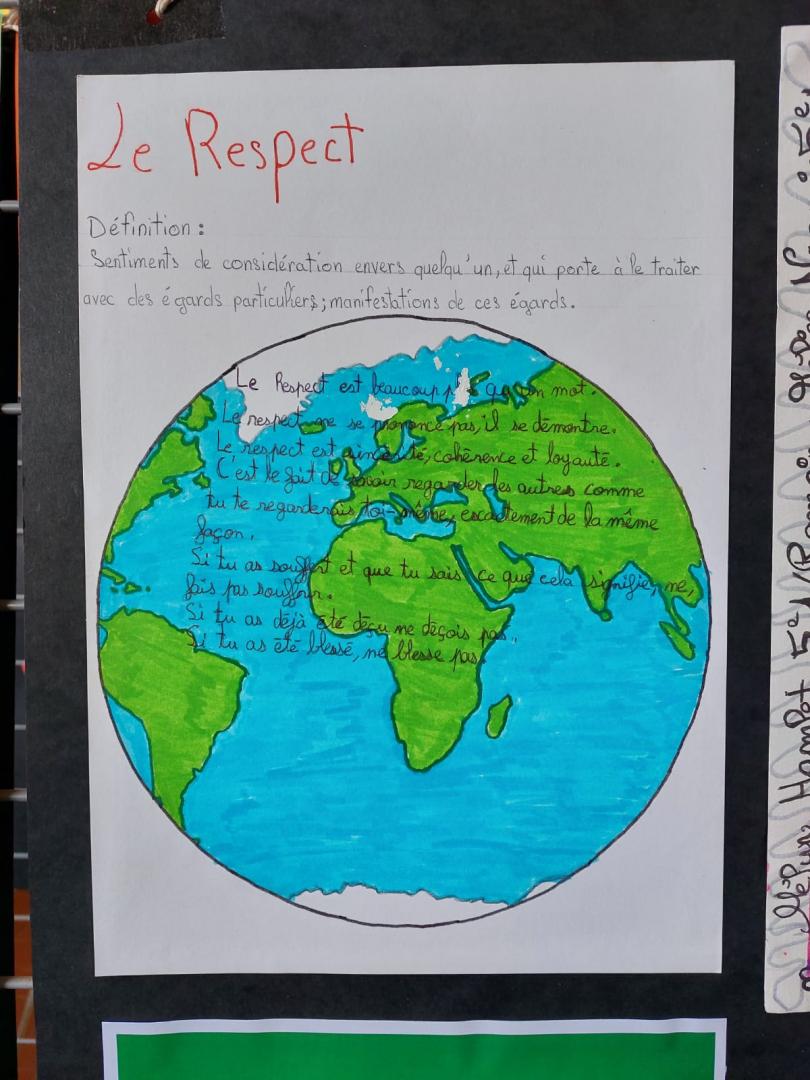 Le Respect
Définition :
Sentiments de considération envers quelqu'un, et qui porte à le traiter
avec des égards particuliers; manifestations de ces égards.
Le Respect est beaucoup plus qu'un mot.
Le respect ne se prononce pas, il se démontre.
Le respect est sincérité, cohérence et loyauté.
C'est le fait de savoir regarder les autres comme
tu te regarderais toi-même, escactement de la même
façon.
Si tu as souffert et que tu sais ce que cela signifie, ne,
fais pas souffrir.
Si tu as déjà été déçu ne deçois pas.
Si tu as été blessé, ne blesse pas.
Hamlet 5e1/